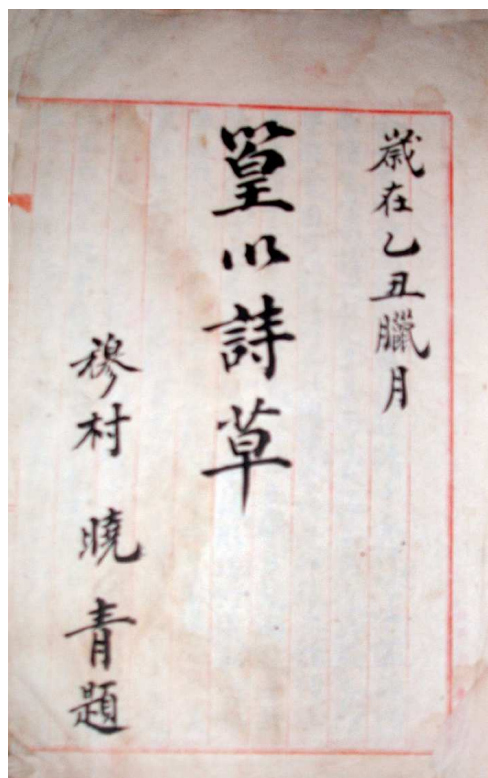 歲在乙丑臘月
篁以詩草
穆村 曉青題